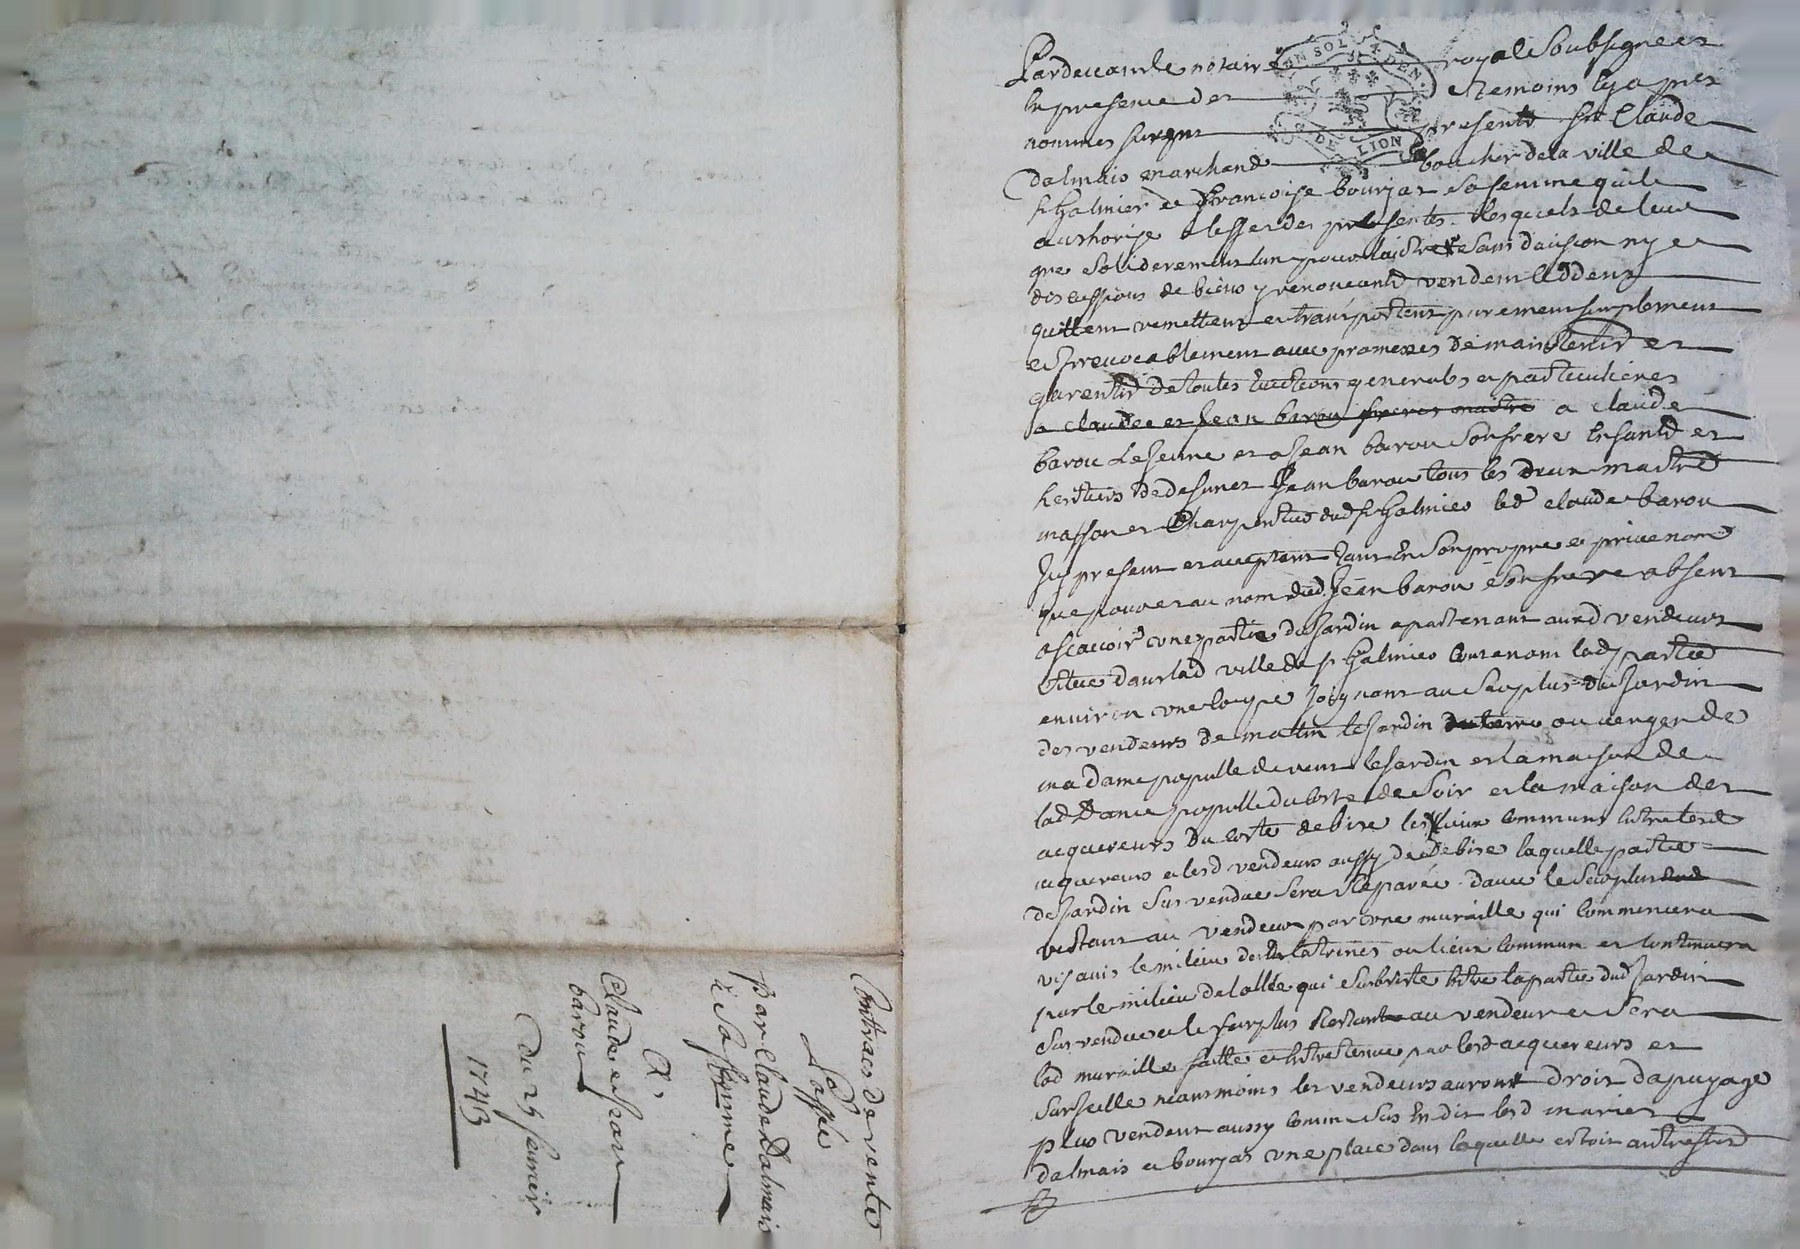 Contrat de vente
Passée
par Claude Dalmais
& sa femme
A,
Claude et Jean
barou
Du 25 feurier
1743
UN SOL 4 DEN.
G. DE LION
Pardeuant le notaire royal soubsigné et
En presence des temoins cy apres
nommes furent presents sr Claude
dalmais marchand boucher de la ville de
st Galmier et francoise bourjat sa femme quil
authorise a leffet des presentes lesquels de leur
gre soliderement lun pour lautre sans diuision ny
discussions de biens y renoncants vendent ceddent
quittent remettent et transportent purement simplement
et Irreuocablement auec promesses de maintenir et
garentir de toutes euictions generales et particulieres
a claude et Jean barou freres maitre a claude
barou le jeune et a Jean barou son frere Enfants et
heritiers de defunct Jean barou tous les deux maitre
masson et charpentier dud st Galmier led claude barou
Icy present et acceptant tant En son propre et priué nom
que pour et au nom dud. Jean barou son frere absent
a scauoir une partie de Jardin apartenant auxd vendeurs
situé dans lad ville de st Galmier contenant lad partie
environ une coupe joignant au surplus du Jardin
des vendeurs de matin le jardin ou verger de
madame populle de vent le jardin et la maison de
lad Dame populle du costé de soir et la maison des
acquereurs du costé de bise les lieux communs Entre lesd
acquereurs et lesd vendeurs aussy de bise laquelle partie
de Jardin sus vendue sera separée dauec le surplus
restant au vendeur par une muraille qui commencera
vis auis le milieu des latrines ou lieux commun et continuera
par le milieu de lallée qui subsiste Entre la partie dud Jardin
sus vendue et le surplus restant au vendeur et sera
lad muraille faitte et Entretenue par lesd acquereurs et
sur icelle neanmoins les vendeurs auront droit dapuyage
plus vendent aussy comme sus En dit lesd mariés
dalmais et bourjat une place dans laquelle estoit autresfois